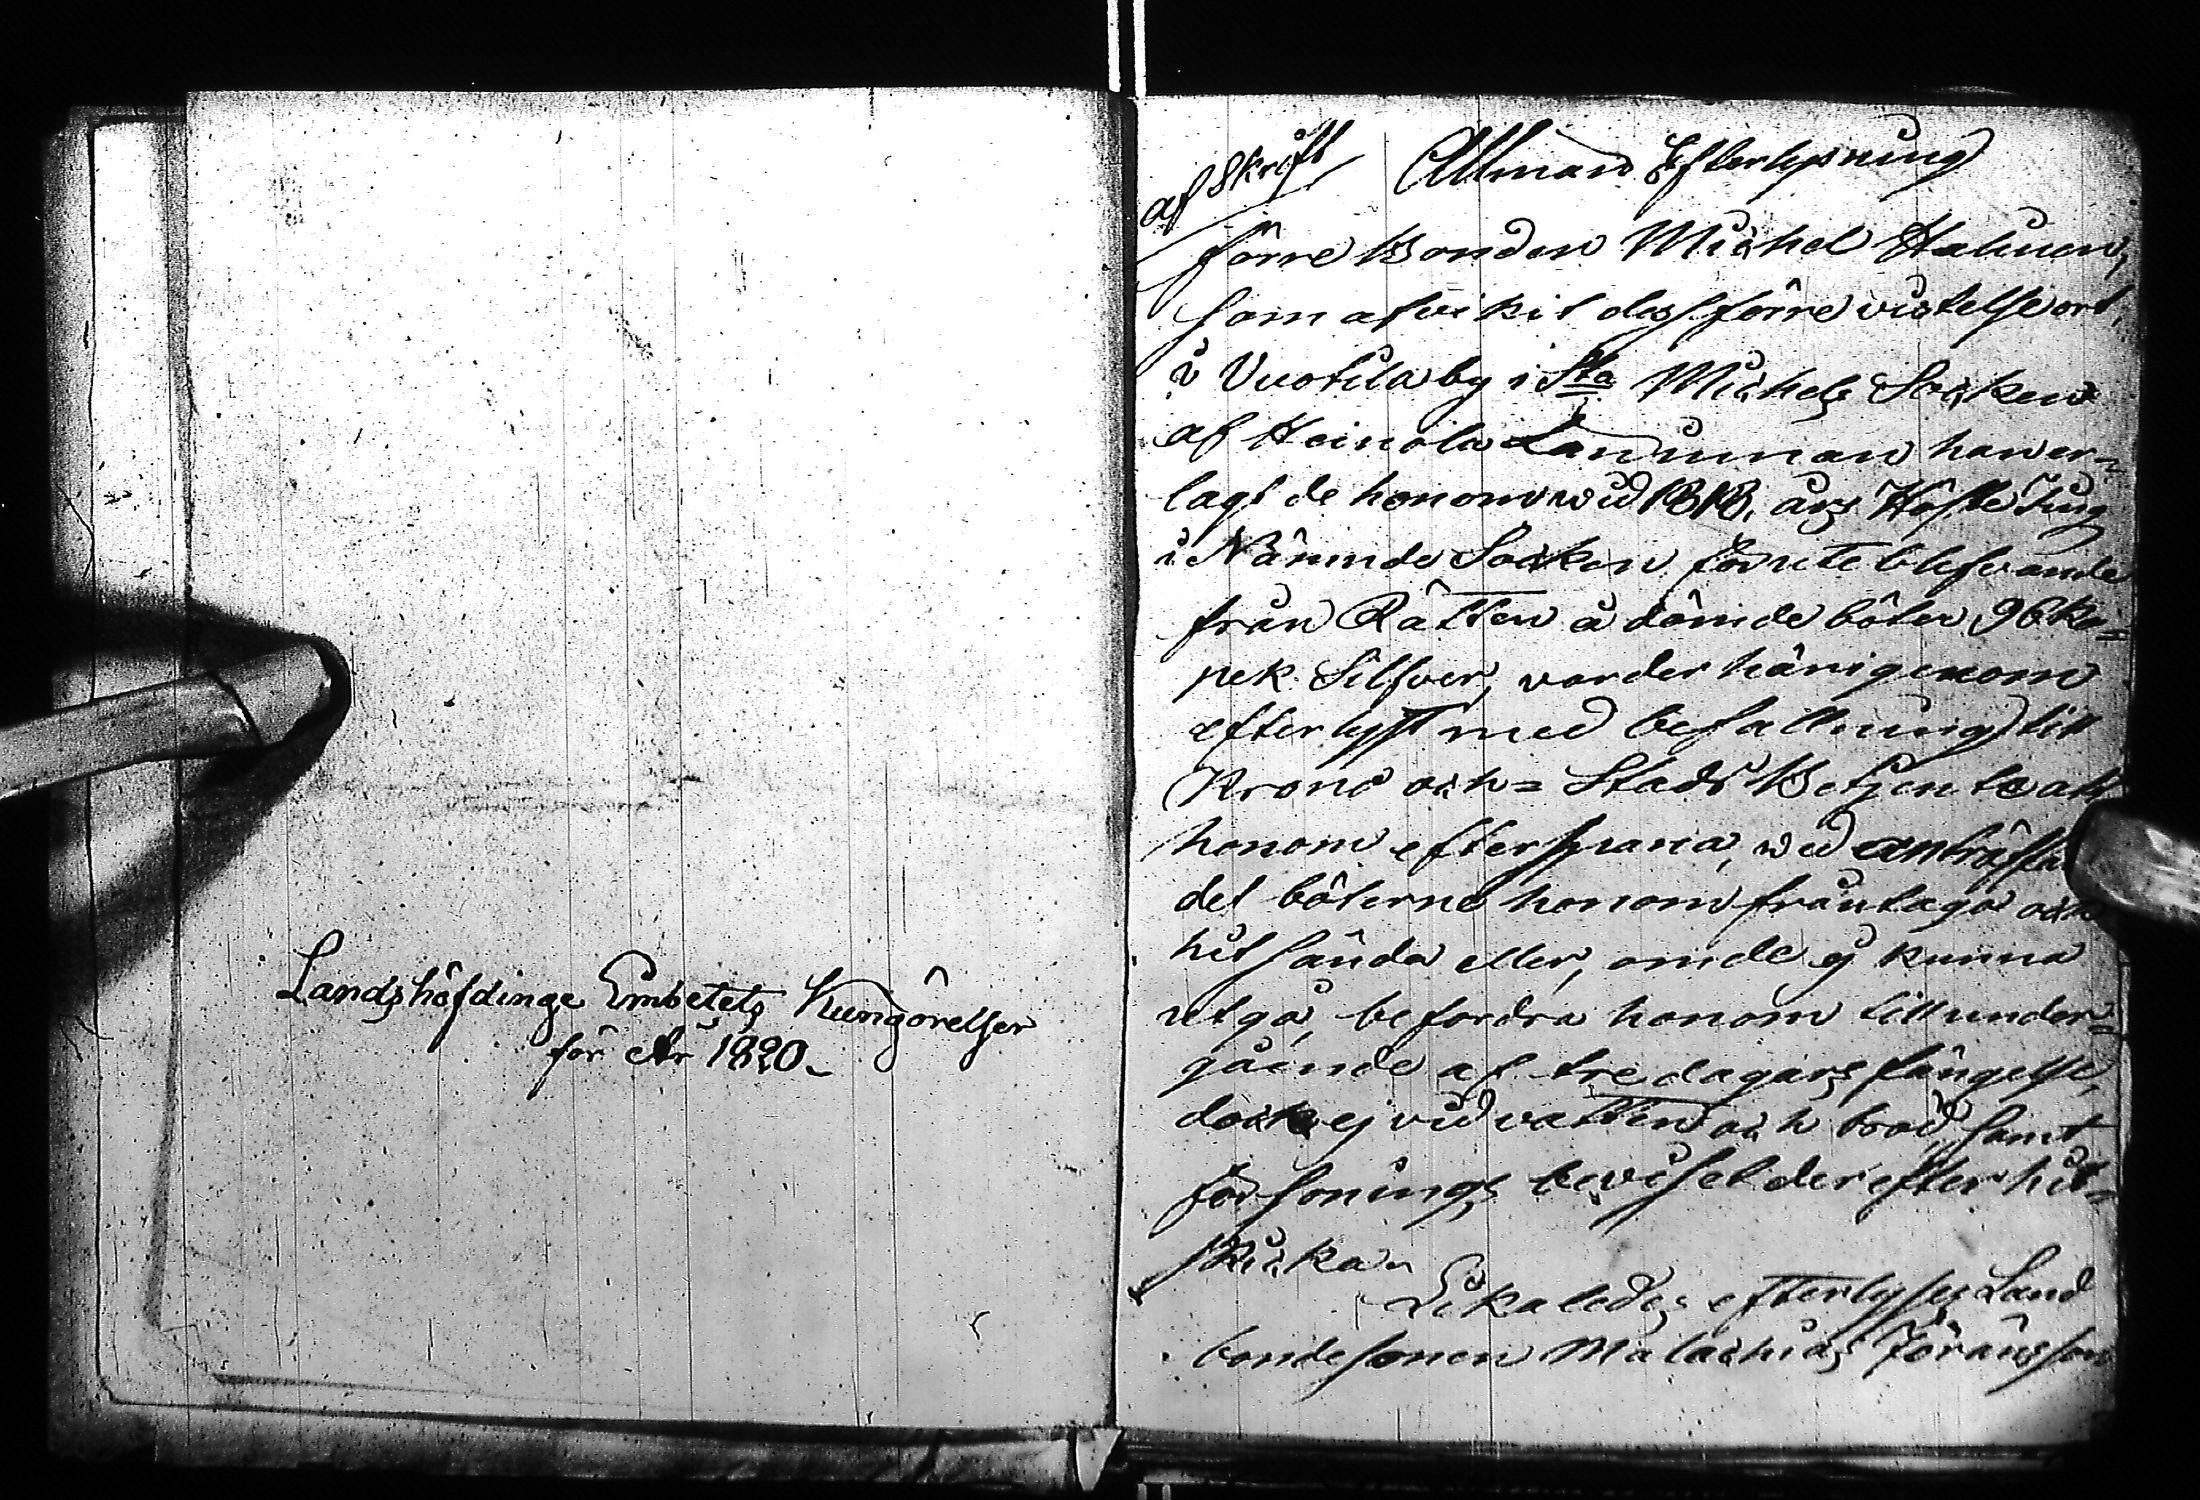 Landshöfdinge Embetets Kungörelser
för År 1820.
afskrift
Allmän Efterlysning
förre Bonden Michel Halinen,
som afvikit dess förre vistelse ort,
i Vuotila by i Sta Michels Socken
af Heinola Län, innan han er=
lagt de honom wid 1818. års Höste Ting
i Nämnde Socken för uteblifvande
från Rätten ådömde böter 96 ko=
pek Silfver, varder härigenom
efterlyst med befallning till
Krono och= Stads Betjente att
honom efterspana, wid anträffan
det böterne honom fråntaga och
hit sända eller, om de ej kunna
utgå, befordra honom till under=
gående af tre dagars fängelse,
dock ej vid vatten och bröd, samt
försonings beviset derefter hit=
skicka.
Likaledes efterlyses Land
bondesonen Malachias Jöransson